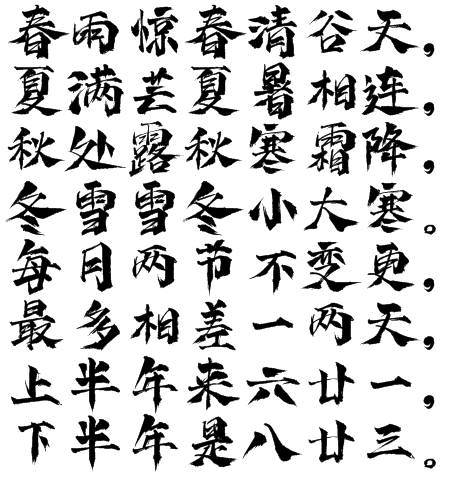 春雨惊春清谷天，
夏满芒夏暑相连，
秋处露秋寒霜降，
冬雪雪冬小大寒。
每月两节不变更，
最多相差一两天，
上半年来六廿一，
下半年是八廿三。